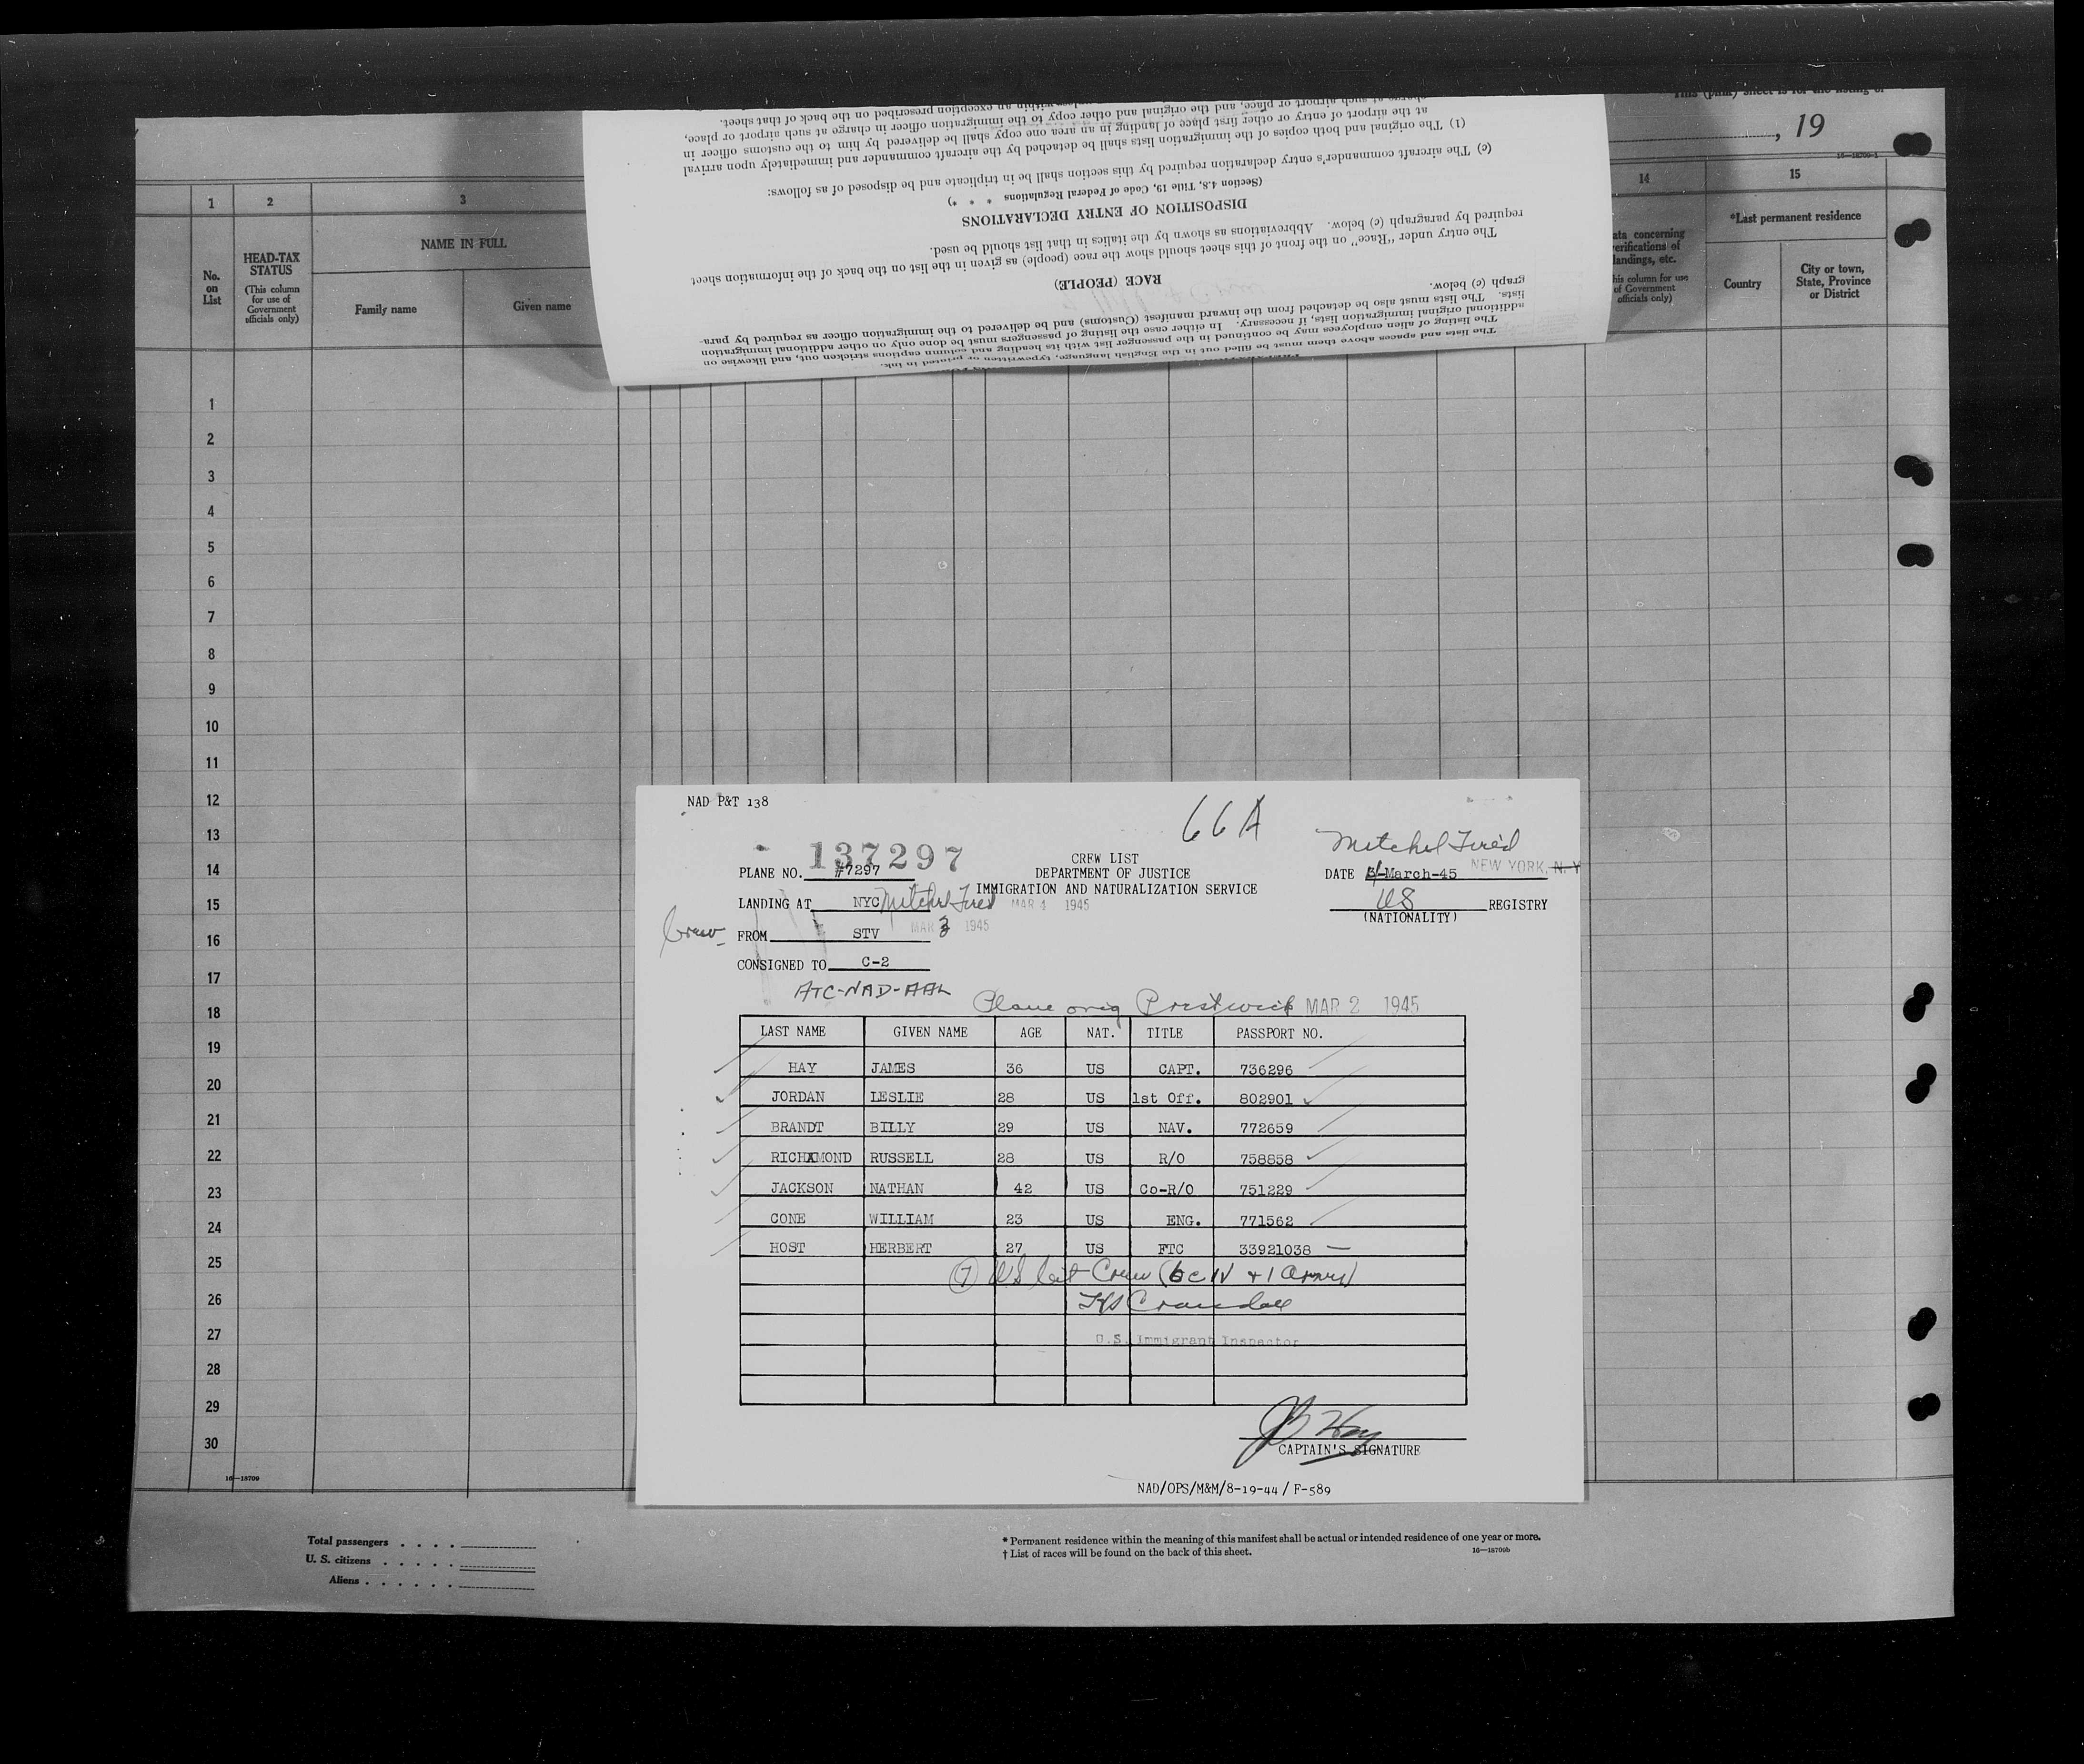 This (pink) sheet is for the listing of
, 19
16—18709-1
charge at such airport or place, and the original and other copy to the immigration officer in charge at such airport or place,
within an exception prescribed on the back of that sheet.
at the airport of entry or other first place of landing in an area one copy shall be delivered by him to the customs officer in
(1) The original and both copies of the immigration lists shall be detached by the aircraft commander and immediately upon arrival
(c) The aircraft commander's entry declaration required by this section shall be in triplicate and be disposed of as follows:
(Section 4.8, Title 19, Code of Federal Regulations * * *)
DISPOSITION OF ENTRY DECLARATIONS
required by paragraph (c) below. Abbreviations as shown by the italics in that list should be used.
The entry under "Race" on the front of this sheet should show the race (people) as given in the list on the back of the information sheet
RACE (PEOPLE)
graph (c) below.
lists. The lists must also be detached from the inward manifest (Customs) and be delivered to the immigration officer as required by para-
additional original immigration lists, if necessary. In either case the listing of passengers must be done only on other additional immigration
The listing of alien employees may be continued in the passenger list with its heading and column captions stricken out, and likewise on
The lists and spaces above them must be filled out in the English language, typewritten or printed in ink.
1 2 3 14 15
No. on List
HEAD-TAX STATUS
(This column for use of Government officials only)
NAME IN FULL
Family name Given name
ata concerning
verifications of
landings, etc.
his column for use
of Government
officials only)
*Last permanent residence
Country
City or town, State, Province or District
1
2
3
4
5
6
7
8
9
10
11
12
13
14
15
16
17
18
19
20
21
22
23
24
25
26
27
28
29
30
16—18709
NAD P&T 138
66A
Mitchel Field
137297
CREW LIST
PLANE NO. #7297 DEPARTMENT OF JUSTICE DATE 3/-March-45 NEW YORK, N. Y
IMMIGRATION AND NATURALIZATION SERVICE
LANDING AT NYC Mitchel Field MAR 4 1945 US REGISTRY
(NATIONALITY)
Crew FROM STV MAR 3 1945
CONSIGNED TO C-2
ATC-NAD-AAL
Plane orig Prestwick MAR 2 1945
LAST NAME GIVEN NAME AGE NAT. TITLE PASSPORT NO.
HAY JAMES 36 US CAPT. 736296
JORDAN LESLIE 28 US 1st Off. 802901
BRANDT BILLY 29 US NAV. 772659
RICHXMOND RUSSELL 28 US R/O 758858
JACKSON NATHAN 42 US Co-R/O 751229
CONE WILLIAM 23 US ENG. 771562
HOST HERBERT 27 US FTC 33921038 —
7 US Cit Crew (6 CIV + 1 Army)
Crandall
U.S. Immigrant Inspector
JB Hay
CAPTAIN'S SIGNATURE
NAD/OPS/M&M/8-19-44/ F-589
Total passengers . . . .
U. S. citizens . . . . .
Aliens . . . . . .
* Permanent residence within the meaning of this manifest shall be actual or intended residence of one year or more.
† List of races will be found on the back of this sheet.
16—18709b